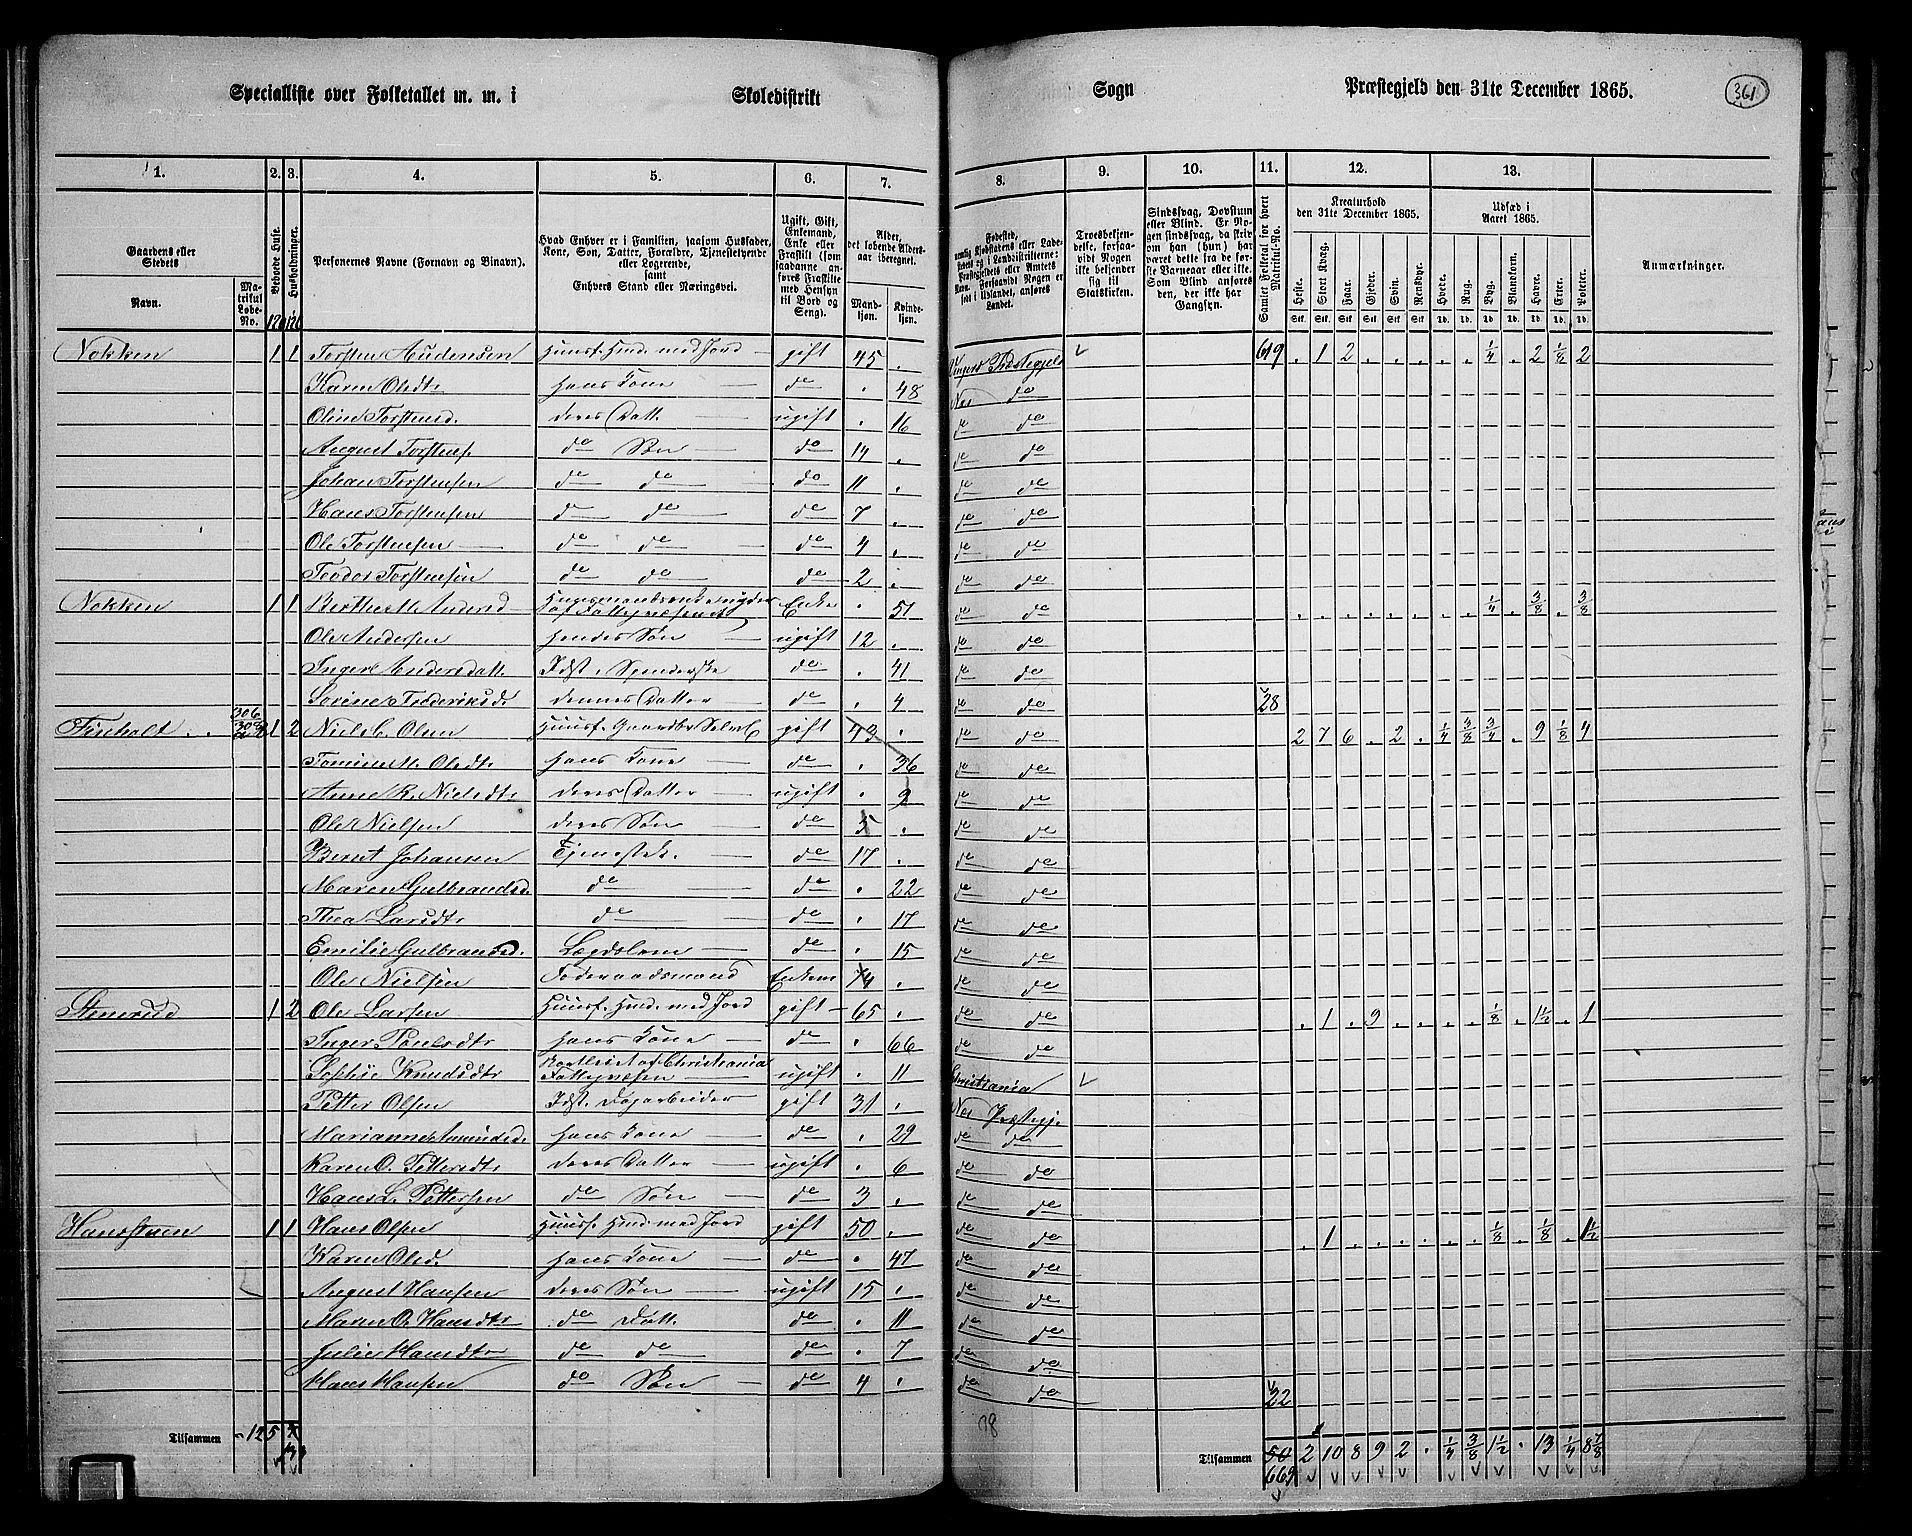 Specialliste over Folketallet m. m. i Skoledistrikt Sogn Præstegjeld den 31te December 1865. 361
1. 2. 3. 4. 5. 6. 7. 8. 9. 10. 11. 12. 13.
Gaardens eller Stedets Navn. Matrikul Løbe-No. Beboede Huse. Husholdninger. Personernes Navne (Fornavn og Binavn).
Hvad Enhver er i Familien, saasom Husfader, Kone, Søn, Datter, Forældre, Tjenestetyende eller Logerende, samt Enhvers Stand eller Næringsvei.
Ugift, Gift, Enkemand, Enke eller Fraskilt (som saadanne anføres Fraskilte med Hensyn til Bord og Seng).
Alder, det løbende Alders-aar iberegnet. Mandkjøn. Kvindekjøn.
Troesbekjendelse, forsaavidt Nogen ikke bekjender sig til Statskirken.
Sindssvag, Døvstum eller Blind.
Samlet Folketal for hvert Matrikul-No.
Kreaturhold den 31te December 1865. Heste. Stort Kvæg. Faar. Gjeder. Svin. Rensdyr.
Udsæd i Aaret 1865. Hvede. Rug. Byg. Blandkorn. Havre. Erter. Poteter.
Anmærkninger.
Nokken 1 1 Torsten Audensen Huusf. Hmd. med Jord gift 45 Præstegjeld 619 1 2 1/4 2 1/8 2
Karen Olsdtr hans Kone do 48 Nes do
Oline Torstensd. deres Datt. ugift 16 do do
August Torstens. do Søn do 14 do do
Johan Torstensen do do do 11 do do
Hans Torstensen do do do 7 do do
Ole Torstensen do do do 4 do do
Teodor Torstensen do do do 2 do do
Nokken 1 1 Berthe M. Andersd af Fattigvæsenet Enke 51 do do 1/4 3/8 3/8
Ole Andersen hendes Søn ugift 12 do do
Inger Andersdatt. Idst. Spinderske do 41 do do
Sorine Frederiksd. dennes Datter do 4 do do 28
Finholt 306 1 2 Niels C. Olsen Huusf. Gaardbr Selvei gift 43 do do 2 7 6 2 1/4 3/8 3/4 9 1/8 4
Olsdtr hans Kone do 36 do do
Anne K. Nielsdtr deres Datter ugift 9 do do
Ole Nielsen deres Søn do 5 do do
Bernt Johansen Tjenestek. do 17 do do
Maren Gulbrandsd. do do 22 do do
Thea Larsdtr do do 17 do do
Emilie Gulbrandsd. Lægdslem do 15 do do
Ole Nielsen Føderaadsmand Enkem 74 do do
Stenerud 1 2 Ole Larsen Huusf. Hmd. med Jord gift 65 do do 1 9 1/8 1 1/2 1
Inger Poulsdtr hans Kone do 66 do do
Sophie Knudsdtr Bortleiet af Christiania Fattigvæsen ugift 11 Christiania
Petter Olsen Idst. Dagarbeider gift 31 Nes Præstegj.
Marianne Amundsd. hans Kone do 29 do do
Karen O. Pettersdtr deres Datter ugift 6 do do
Hans L. Pettersen do Søn do 3 do do
1 1 Hans Olsen Huusf. Hmd. med Jord gift 50 do do 1 1/8 1/8 1 1/2
Karen Olsd. hans Kone do 47 do do
August Hansen deres Søn ugift 15 do do
Maren O. Hansdtr do Datt. do 11 do do
Julie Hansdtr do do do 7 do do
Hans Hansen do Søn do 4 do do 22
98
Tilsammen 125 Tilsammen 50 2 10 8 9 2 1/4 3/8 1 1/2 13 1/4 8 7/8
669